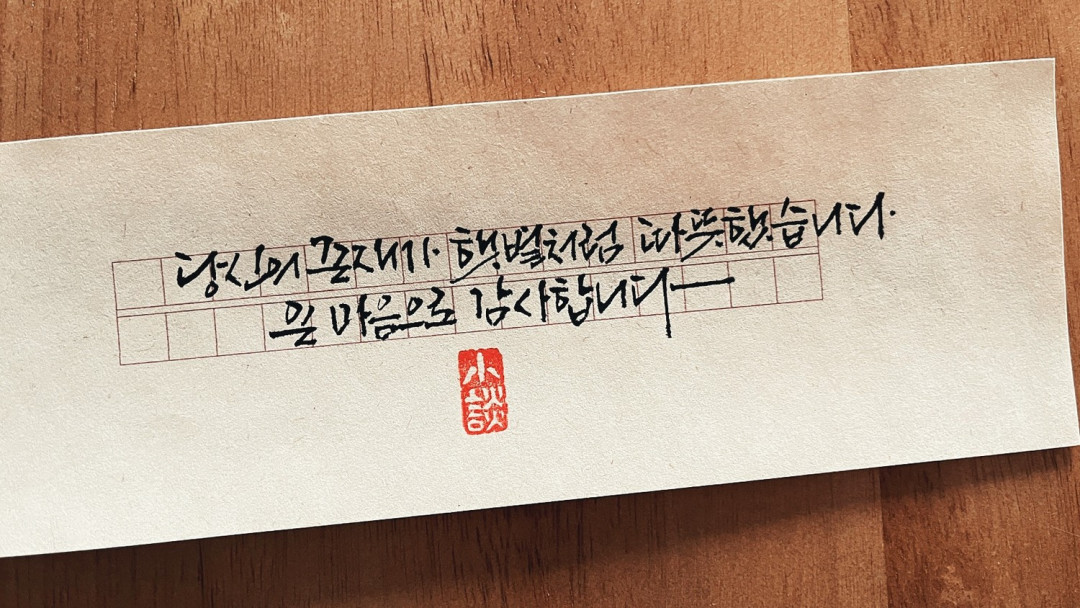 당신의 존재가 햇볕처럼 따뜻했습니다.
온 마음으로 감사합니다
小談